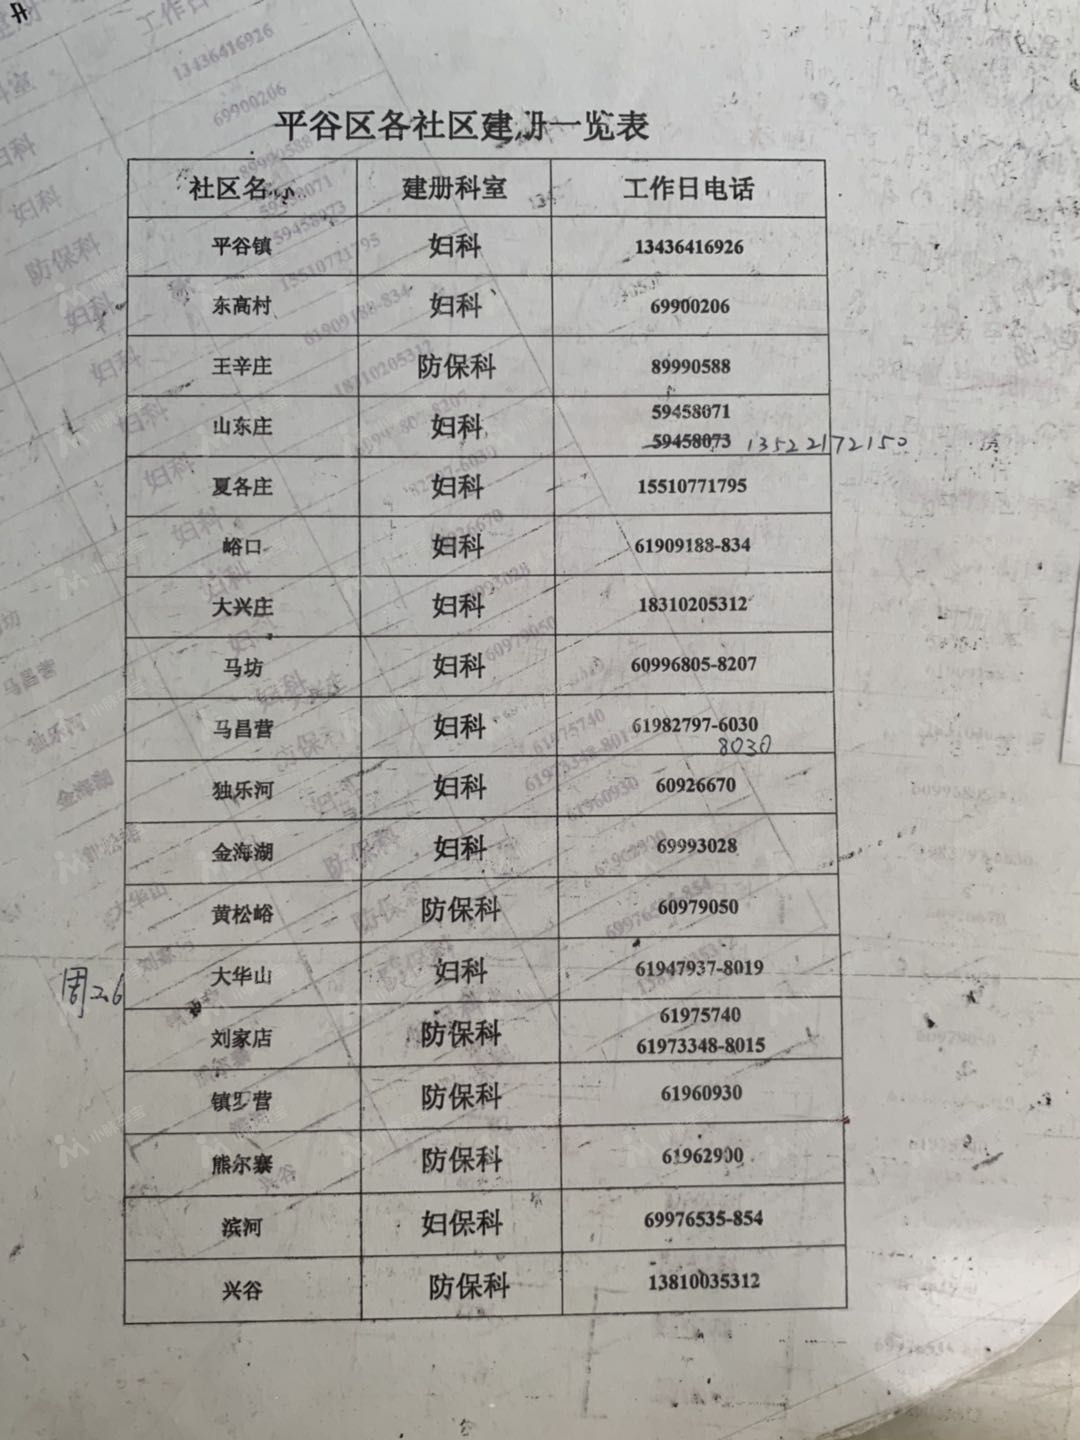 平谷区各社区建册一览表
社区名 建册科室 工作日电话
平谷镇 妇科 13436416926
东高村 妇科 69900206
王辛庄 防保科 89990588
山东庄 妇科 59458071
59458073 13522172150
夏各庄 妇科 15510771795
峪口 妇科 61909188-834
大兴庄 妇科 18310205312
马坊 妇科 60996805-8207
马昌营 妇科 61982797-6030
8030
独乐河 妇科 60926670
金海湖 妇科 69993028
黄松峪 防保科 60979050
大华山 妇科 61947937-8019
周2.6
刘家店 防保科 61975740
61973348-8015
镇罗营 防保科 61960930
熊尔寨 防保科 61962900
滨河 妇保科 69976535-854
兴谷 防保科 13810035312